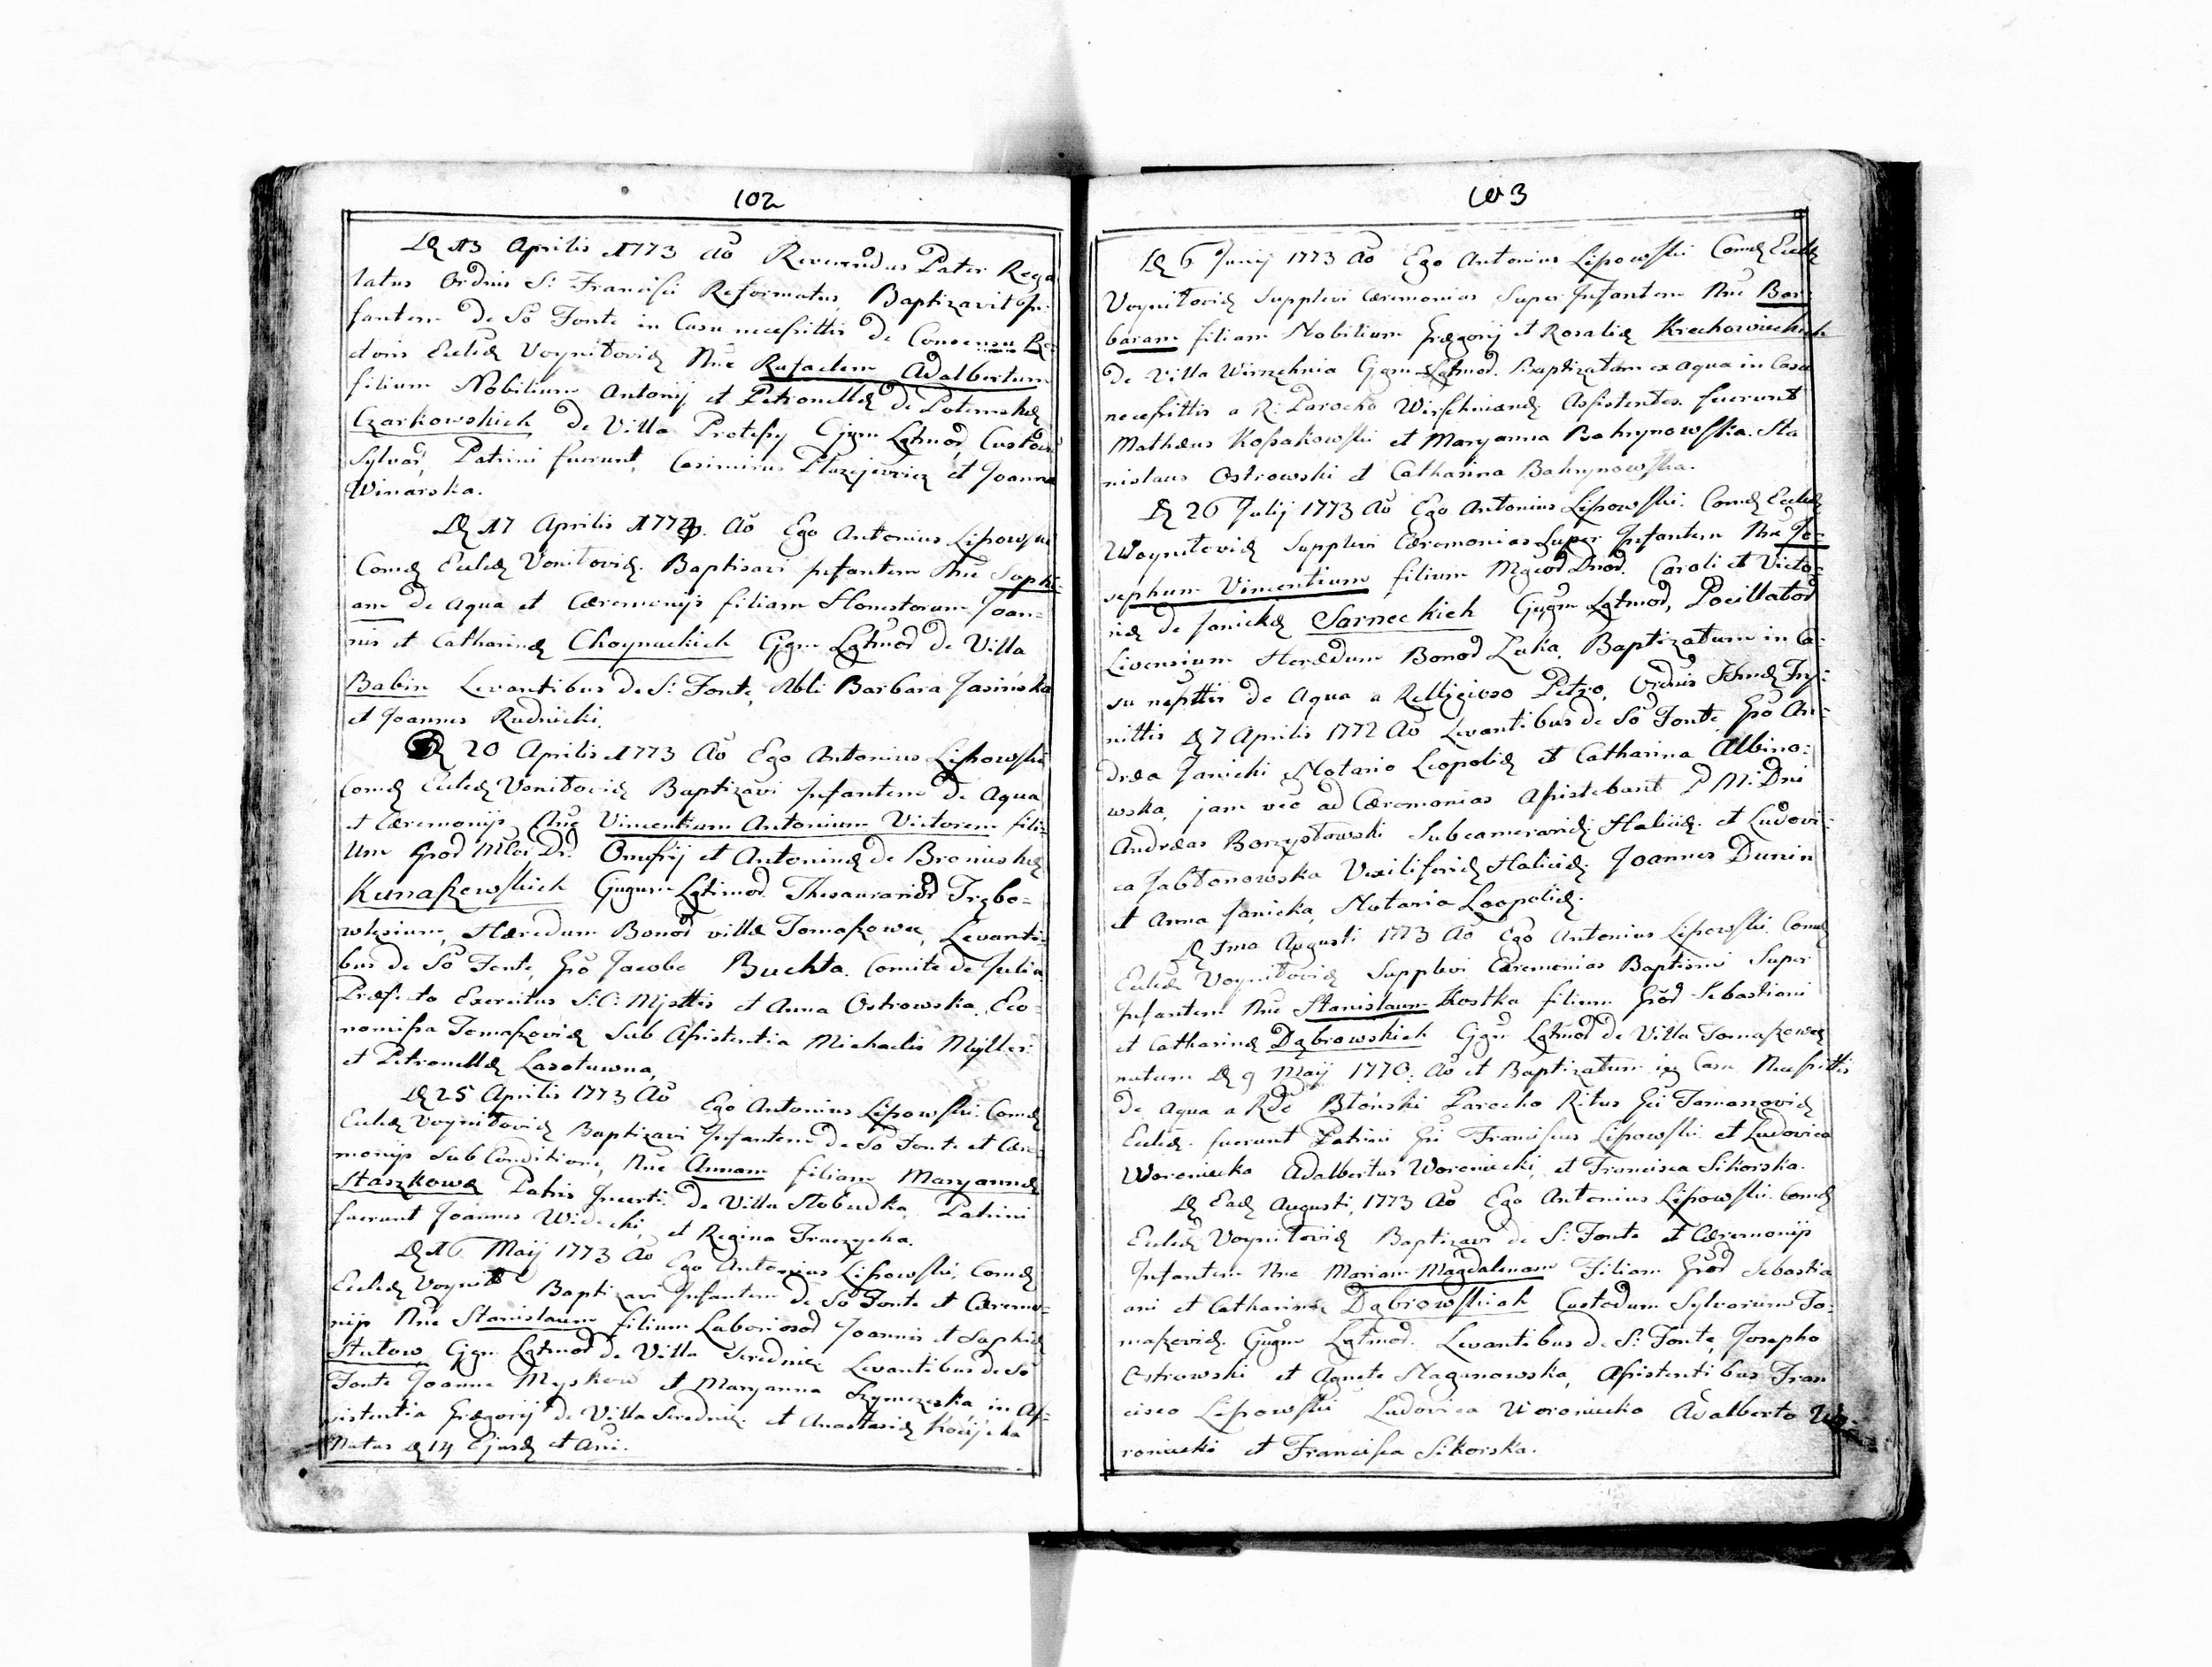 102
D 13 Aprilis 1773 Aō Reverendus Pater Rega
latus Ordnis S: Francisci Reformatus, Baptizavit In-
fantem de Sō Fonte in Casu necessittis de Consensu Re-
ctoris Eccleæ Voynitoviæ Nne Rafaelem Adalbertum
filium Nobilium Antonij et Petronellæ de Potemskie
Czarkowskich de Villa Protesy Cjgm Lgtmor, Custod
Sylvar, Patrini fuerunt, Casimirus Blazejewicz et Joanna
Winarska.
D 17 Aprilis 1773. Aō Ego Antonius Lipowski
Comd Eccleæ Vonitoviæ. Baptisavi Infantem Nne Sophi-
am de aqua et Cæremonijs filiam Honestorum Joan-
nis et Catharinæ Choynackich Cjgm Lgtmor de Villa
Babin Levantibus de S: Fonte, Nbli Barbara Jasinska
et Joannes Rudnicki.
D 20 Aprilis 1773 Aō Ego Antonius Lipowski
Comd Eccleæ Vonitoviæ Baptizavi Infantem de Aqua
et Cæremonijs Nne Vincentium Antonium Victorem fili-
um Gror Mlci Dr. Onufrij et Antoninæ de Bronieskie
Kunaszewskich Cjugum Lgtimor. Thesaurarior Trębo-
wlsium, Hæredum Bonor villæ Tomaszowce, Levanti-
bus de Sō Fonte, Gsō Jacobo Buchta. Comite de Julia
Præfecto Exercitus S: C: Mjsttis et Anna Ostrowska, Eco-
nomissa Tomaszoviæ Sub Assistentia Michaelis Myller
et Petronellæ Lasotuwna,
D 25 Aprilis 1773 Aō Ego Antonius Lipowski Comd
Eccleæ Voynitoviæ Baptizavi Infantem de Sō Fonte et Cære-
monijs Sub Conditione, Nne Annam filiam Maryannæ
Staszkowa Patris Incerti de Villa Slobudka, Patrini
fuerunt Joannes Widecki, et Regina Traczycha.
D 16 Maij 1773 Aō Ego Antonius Lipowski, Comd
Eccleæ Voynitt Baptizavi Infantem de Sō Fonte et Cæremo-
nijs Nne Stanislaum filium Laboriosor Joannis et Sophiæ
Stutow Cjgm Lgtmor de Villa Serednie Levantibus de Sō
Fonte Joanne Myskow et Maryanna Szymczeska in As-
sistentia Grægorij de Villa Serednie. et Anastasiæ Kocijcha
Natus d 14 Ejusd et Ani.
103
D 6 Junij 1773 Aō Ego Antonius Lipowski Comd Eccleæ
Voynitoviæ Supplevi Cæremonias Super Infantem Nne Bar-
baram filiam Nobilium Grægorij et Rosaliæ Krechowieckich
de Villa Wirzchnia Cjgm Lgtmor. Baptizatam ex Aqua in Casu
necessittis a R: Parocho Wirschnianæ. Assistentes fuerunt
Mathæus Kossakowski et Maryanna Bahrynowska. Sta
nislaus Ostrowski et Catharina Bahrynowska.
D 26 Julij 1773 Aō Ego Antonius Lipowski. Comd Eccleæ
Woynitoviæ Supplevi Cæremonias Super Infantem Nne Jo-
sephum Vincentium filium Mgcor Dnor. Caroli et Victo-
riæ de Janickie Sarneckich Cjugm Lgtmor, Pocillator
Livensium Hæredum Bonor Łuka, Baptizatum in Ca-
su nessttis de Aqua a Relligioso Petro, Ordnis SSmæ Tri-
nittis D 7 Aprilis 1772 Aō Levantibus de Sō Fonte, Gsō An-
dræa Janicki Notario Leopoliæ et Catharina Albino-
wska, jam veō ad Cæremonias Assistebant PM: Dni
Andræas Borzysławski Subcamerarid: Haliciæ. et Ludovi-
ca Jabłonowska Vexiliferid Haliciæ. Joannes Dunin
et Anna Janicka, Notaria Leopoliæ.
D 1ma Augusti 1773 Aō Ego Antonius Lipowski. Comd
Eccleæ Voynitoviæ Supplevi Cæremonias Baptismi Super
Infantem Nne Stanislaum Kostka filium Gror Sebastiani
et Catharinæ Dąbrowskich Cjgm Lgtmor de Villa Tomaszowce
natum D 9 Maij 1770: Aō et Baptizatum in Casu Necessittis
de aqua a Rde Błónski Parocho Ritus Gci Tomaszoviæ
Eccleæ. fuerunt Patrini Gsi Franciscus Lipowski et Ludovica
Woroniecka Adalbertus Woroniecki, et Francisca Sikorska.
D Ead Augusti, 1773 Aō Ego Antonius Lipowski. Comd
Eccleæ Voynitoviæ Baptizavi de S: Fonte et Cæremonijs
Infantem Nne Mariam Magdalenam Filiam Gror Sebastia
ani et Catharinæ Dąbrowskich Custodum Sylvarum To-
maszoviæ. Cjugm Lgtmor. Levantibus de S: Fonte, Josepho
Ostrowski et Agnete Naganowska, Assistentibus Fran
cisco Lipowski Ludovica Woroniecko Adalberto Wo-
roniecki et Francisca Sikorska.